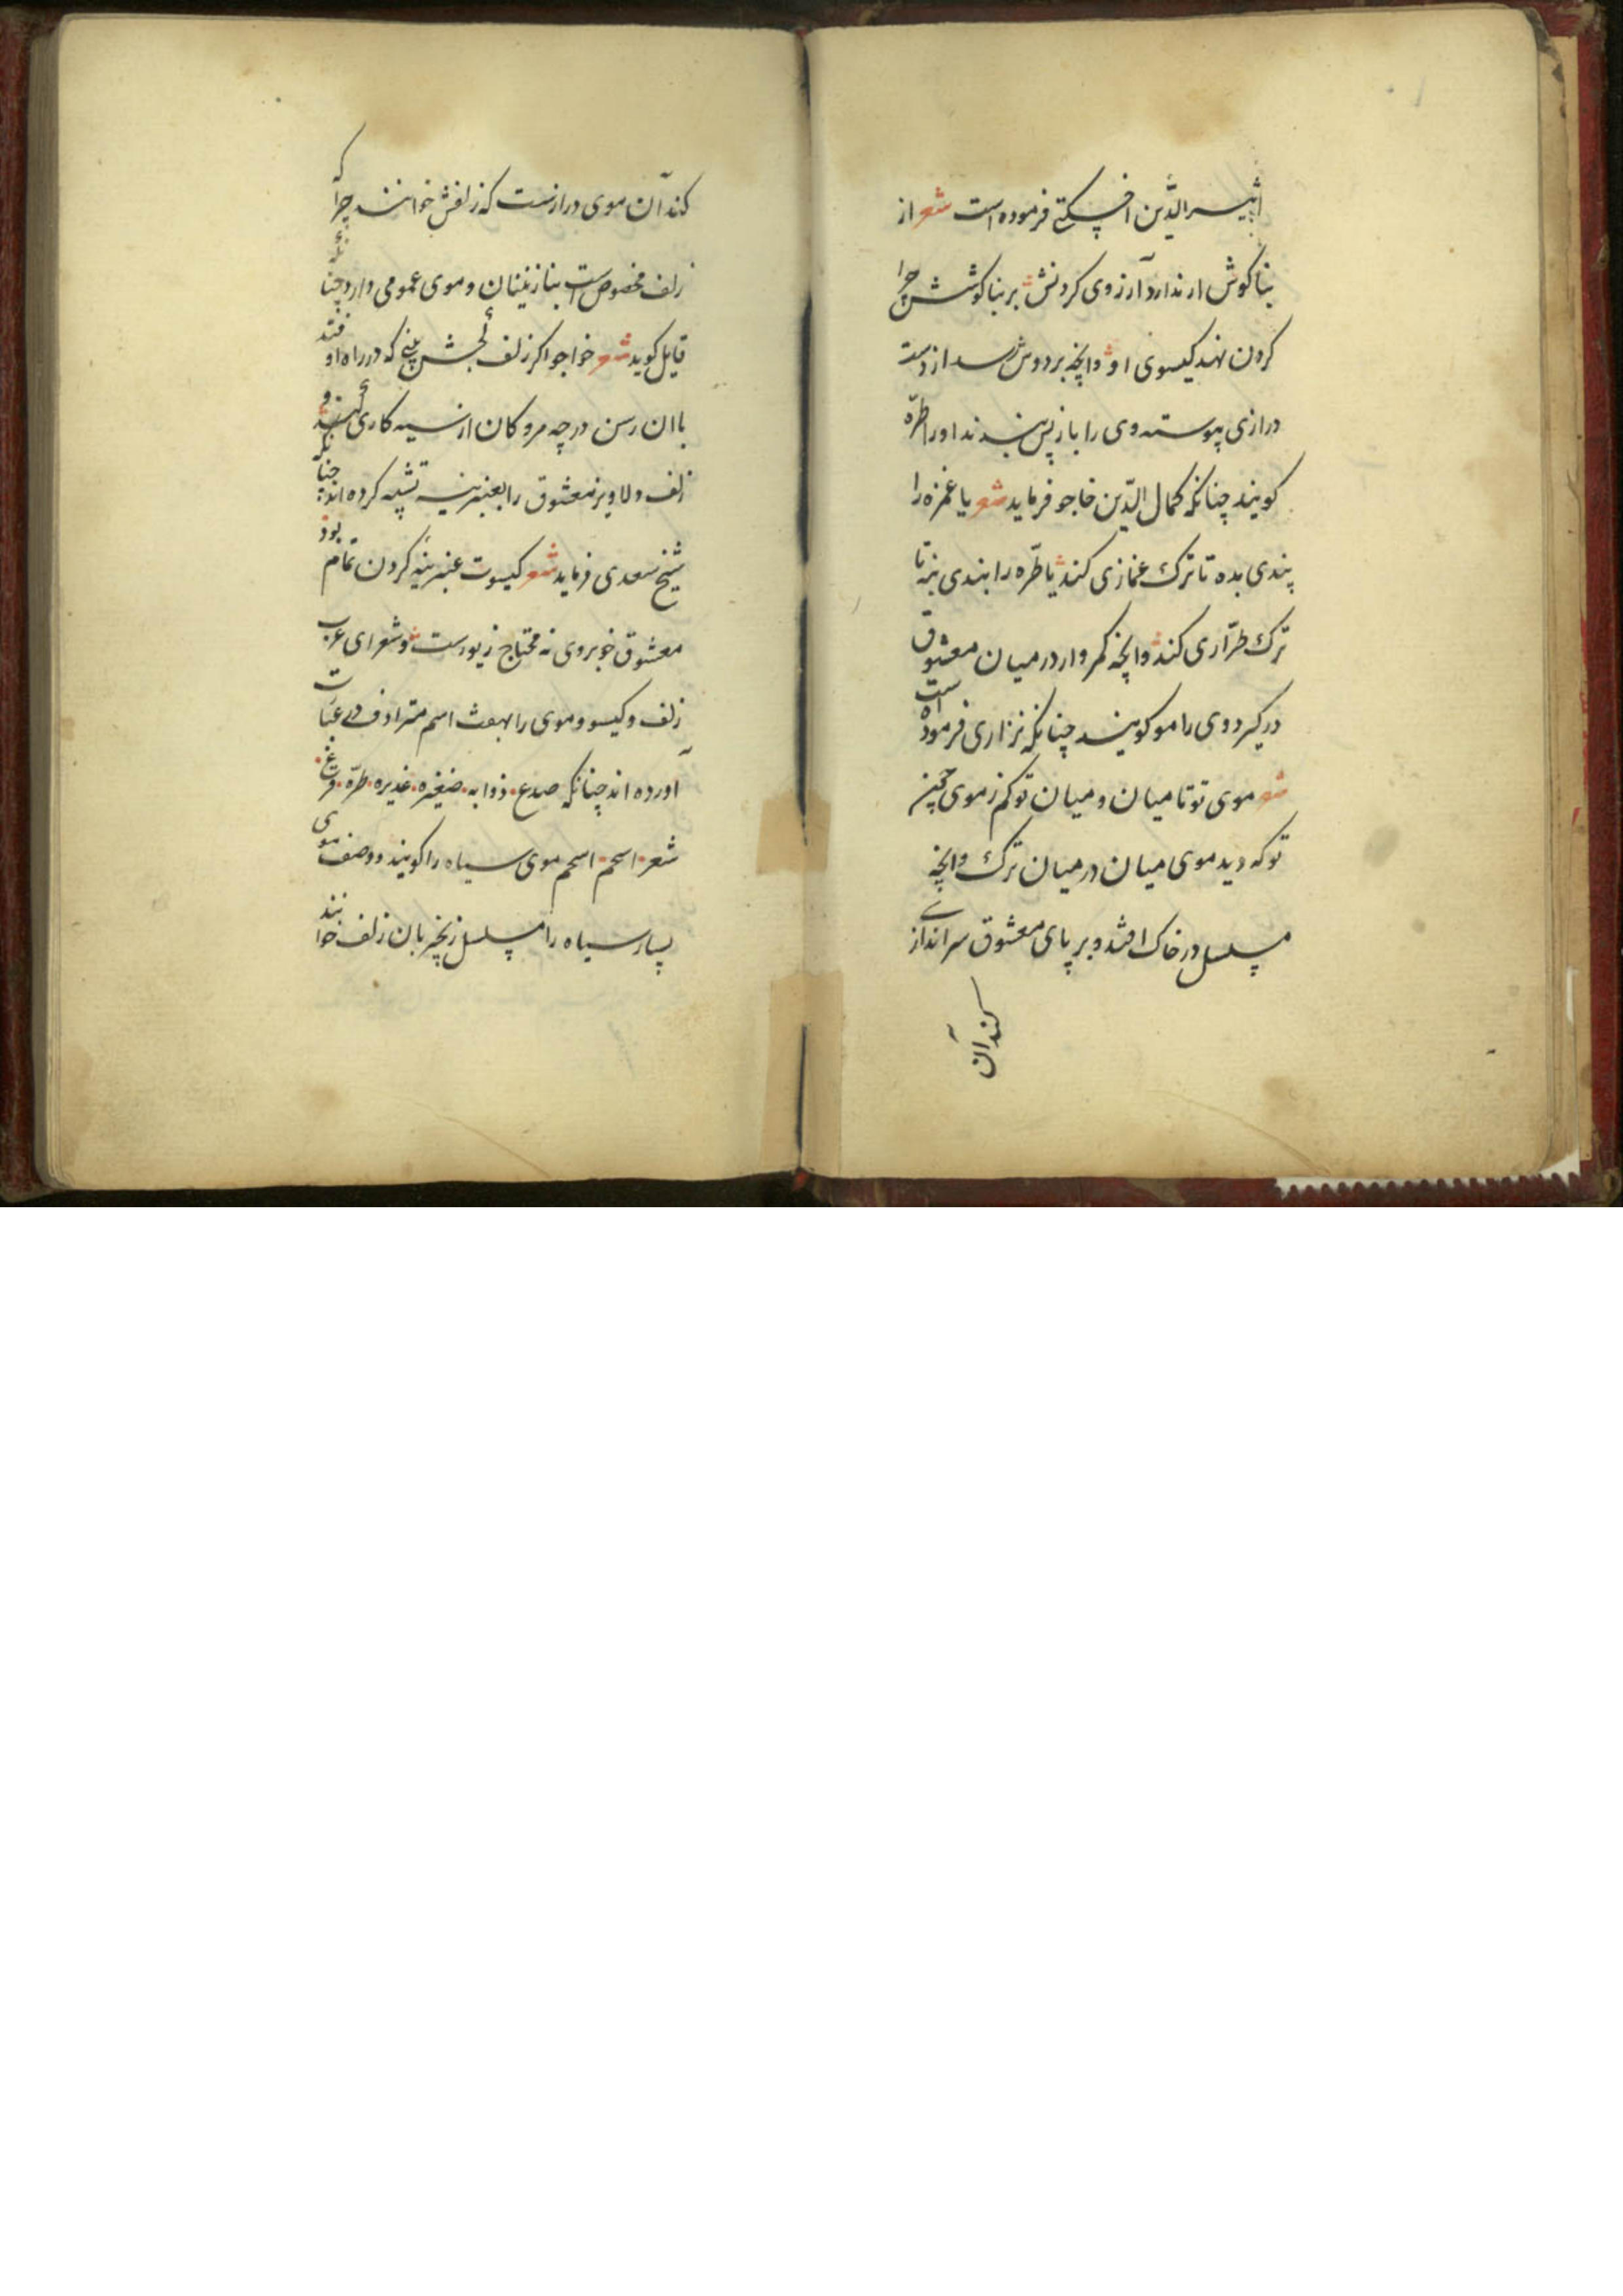 اثیر الدّین اخسیکتی فرموده است شعر از
بناکوش ار ندارد آرزوی کردنش بر بناکوشش چرا
کردن نهد کیسوی او وانچه بر دوش رسد از دست
درازی پیوسته وی را باز پس بندند او را طرّه
کویند چنانکه کمال الدّین خاجو فرماید شعر یا غمزه را
پندی بده تا ترک غمازی کند یا طرّه را بندی بنه تا
ترک طرّاری کند وانچه کمر وار در میان معشوق
در کیرد وی را مو کویند چنانکه نزاری فرموده است
شعر موی تو تا میان و میان تو کم ز موی جز
تو که دید موی میان در میان ترک وانچه
مسلسل در خاک افتد و بر پای معشوق سراندازی
کند آن
کند آن موی درازست که زلفش خوانند چرا که
زلف مخصوص است بنازنینان و موی عمومی دارد چنانکه
قایل کوید شعر خواجو اکر زلف کجش بینی که در راه او فتد
با ان رسن در چه مرو کان از سیه کاری کند و
زلف دلاویز معشوق را بعنبرینه تشبیه کرده اند چنانکه
شیخ سعدی فرماید شعر کیسوت عنبرینهٔ کردن تمام بود
معشوق خوبروی نه محتاج زیورست و شعرای عرب
زلف و کیسو و موی را بهفت اسم مترادف در عبارت
آورده اند چنانکه صدغ ذوابه ضفیره غدیره طرّه فرع
شعر اسحم اسحم موی سیاه را کویند و وصف موی
بسیار سیاه را مسلسل زنجیر بان زلف خوانند